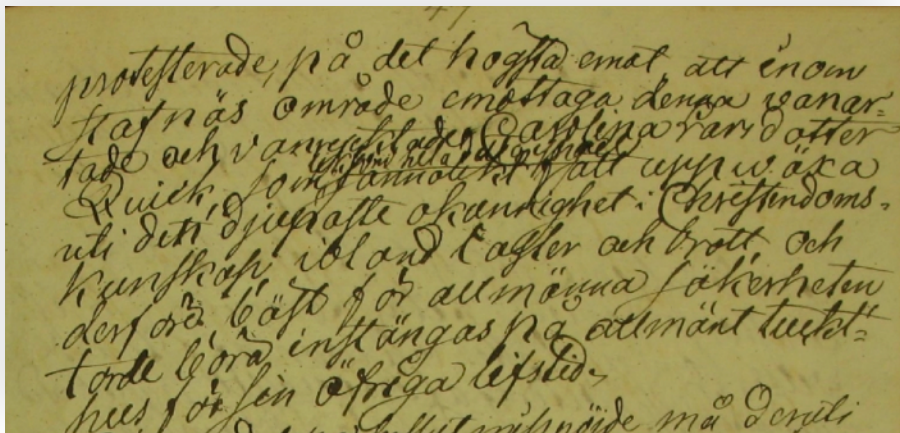 protesterade, på det högsta emot att inom
Stafnäs område emottaga denna vanar-
tade och vanryktade Carolina Larsdotter
Quick, som fått uppwäxa
uti den djupaste okunnighet i Christendoms-
kunskap, ibland laster och brott, och
derföre bäst för allmänna säkerheten
torde böra instängas på allmänt tuckt-
hus för sin öfriga lifstid.
må deruti